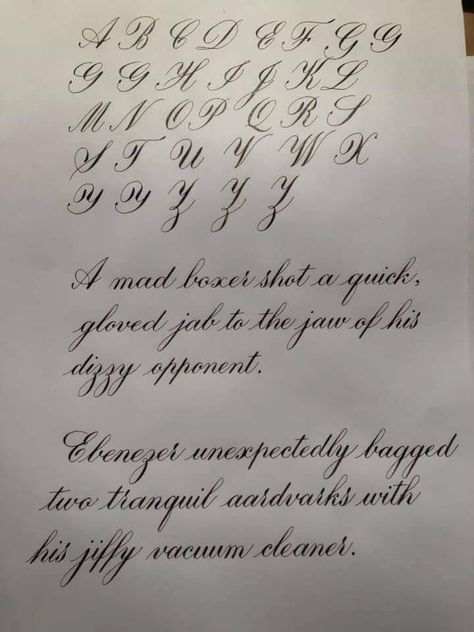 A B C D E F G G
G G H I J K L
M N O P Q R S
S T U V W X
Y Y Z Z Z
A mad boxer shot a quick,
gloved jab to the jaw of his
dizzy opponent.
Ebenezer unexpectedly bagged
two tranquil aardvarks with
his jiffy vacuum cleaner.